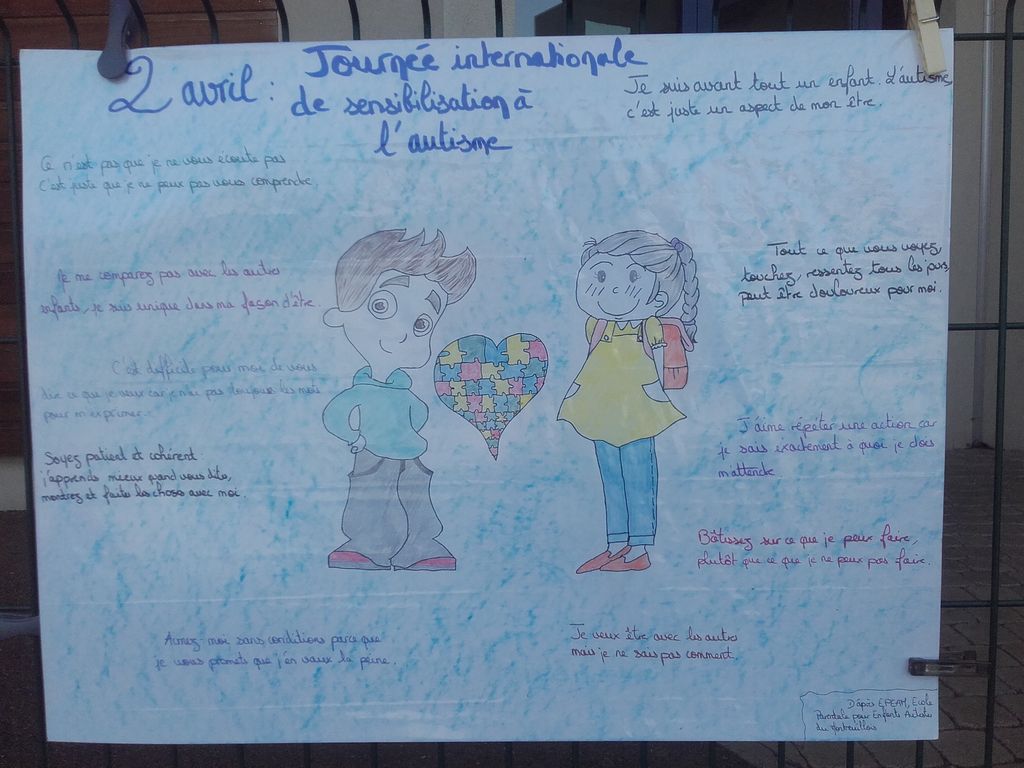 2 avril : Journée internationale
de sensibilisation à
l'autisme
Je suis avant tout un enfant. L'autisme,
c'est juste un aspect de mon être.
Ce n'est pas que je ne vous écoute pas
C'est juste que je ne peux pas vous comprendre.
Ne me comparez pas avec les autres
enfants, je suis unique dans ma façon d'être.
Tout ce que vous voyez,
touchez, ressentez tous les jours,
peut être douloureux pour moi.
C'est difficile pour moi de vous
dire ce que je veux car je n'ai pas toujours les mots
pour m'exprimer.
Soyez patient et cohérent:
j'apprends mieux quand vous dites,
montrez et faites les choses avec moi.
J'aime répéter une action car
je sais exactement à quoi je dois
m'attendre.
Bâtissez sur ce que je peux faire,
plutôt que ce que je ne peux pas faire.
Aimez-moi sans conditions parce que
je vous promets que j'en vaux la peine.
Je veux être avec les autres
mais je ne sais pas comment.
D'après EPEAM, Ecole
Parentale pour Enfants Autistes
du